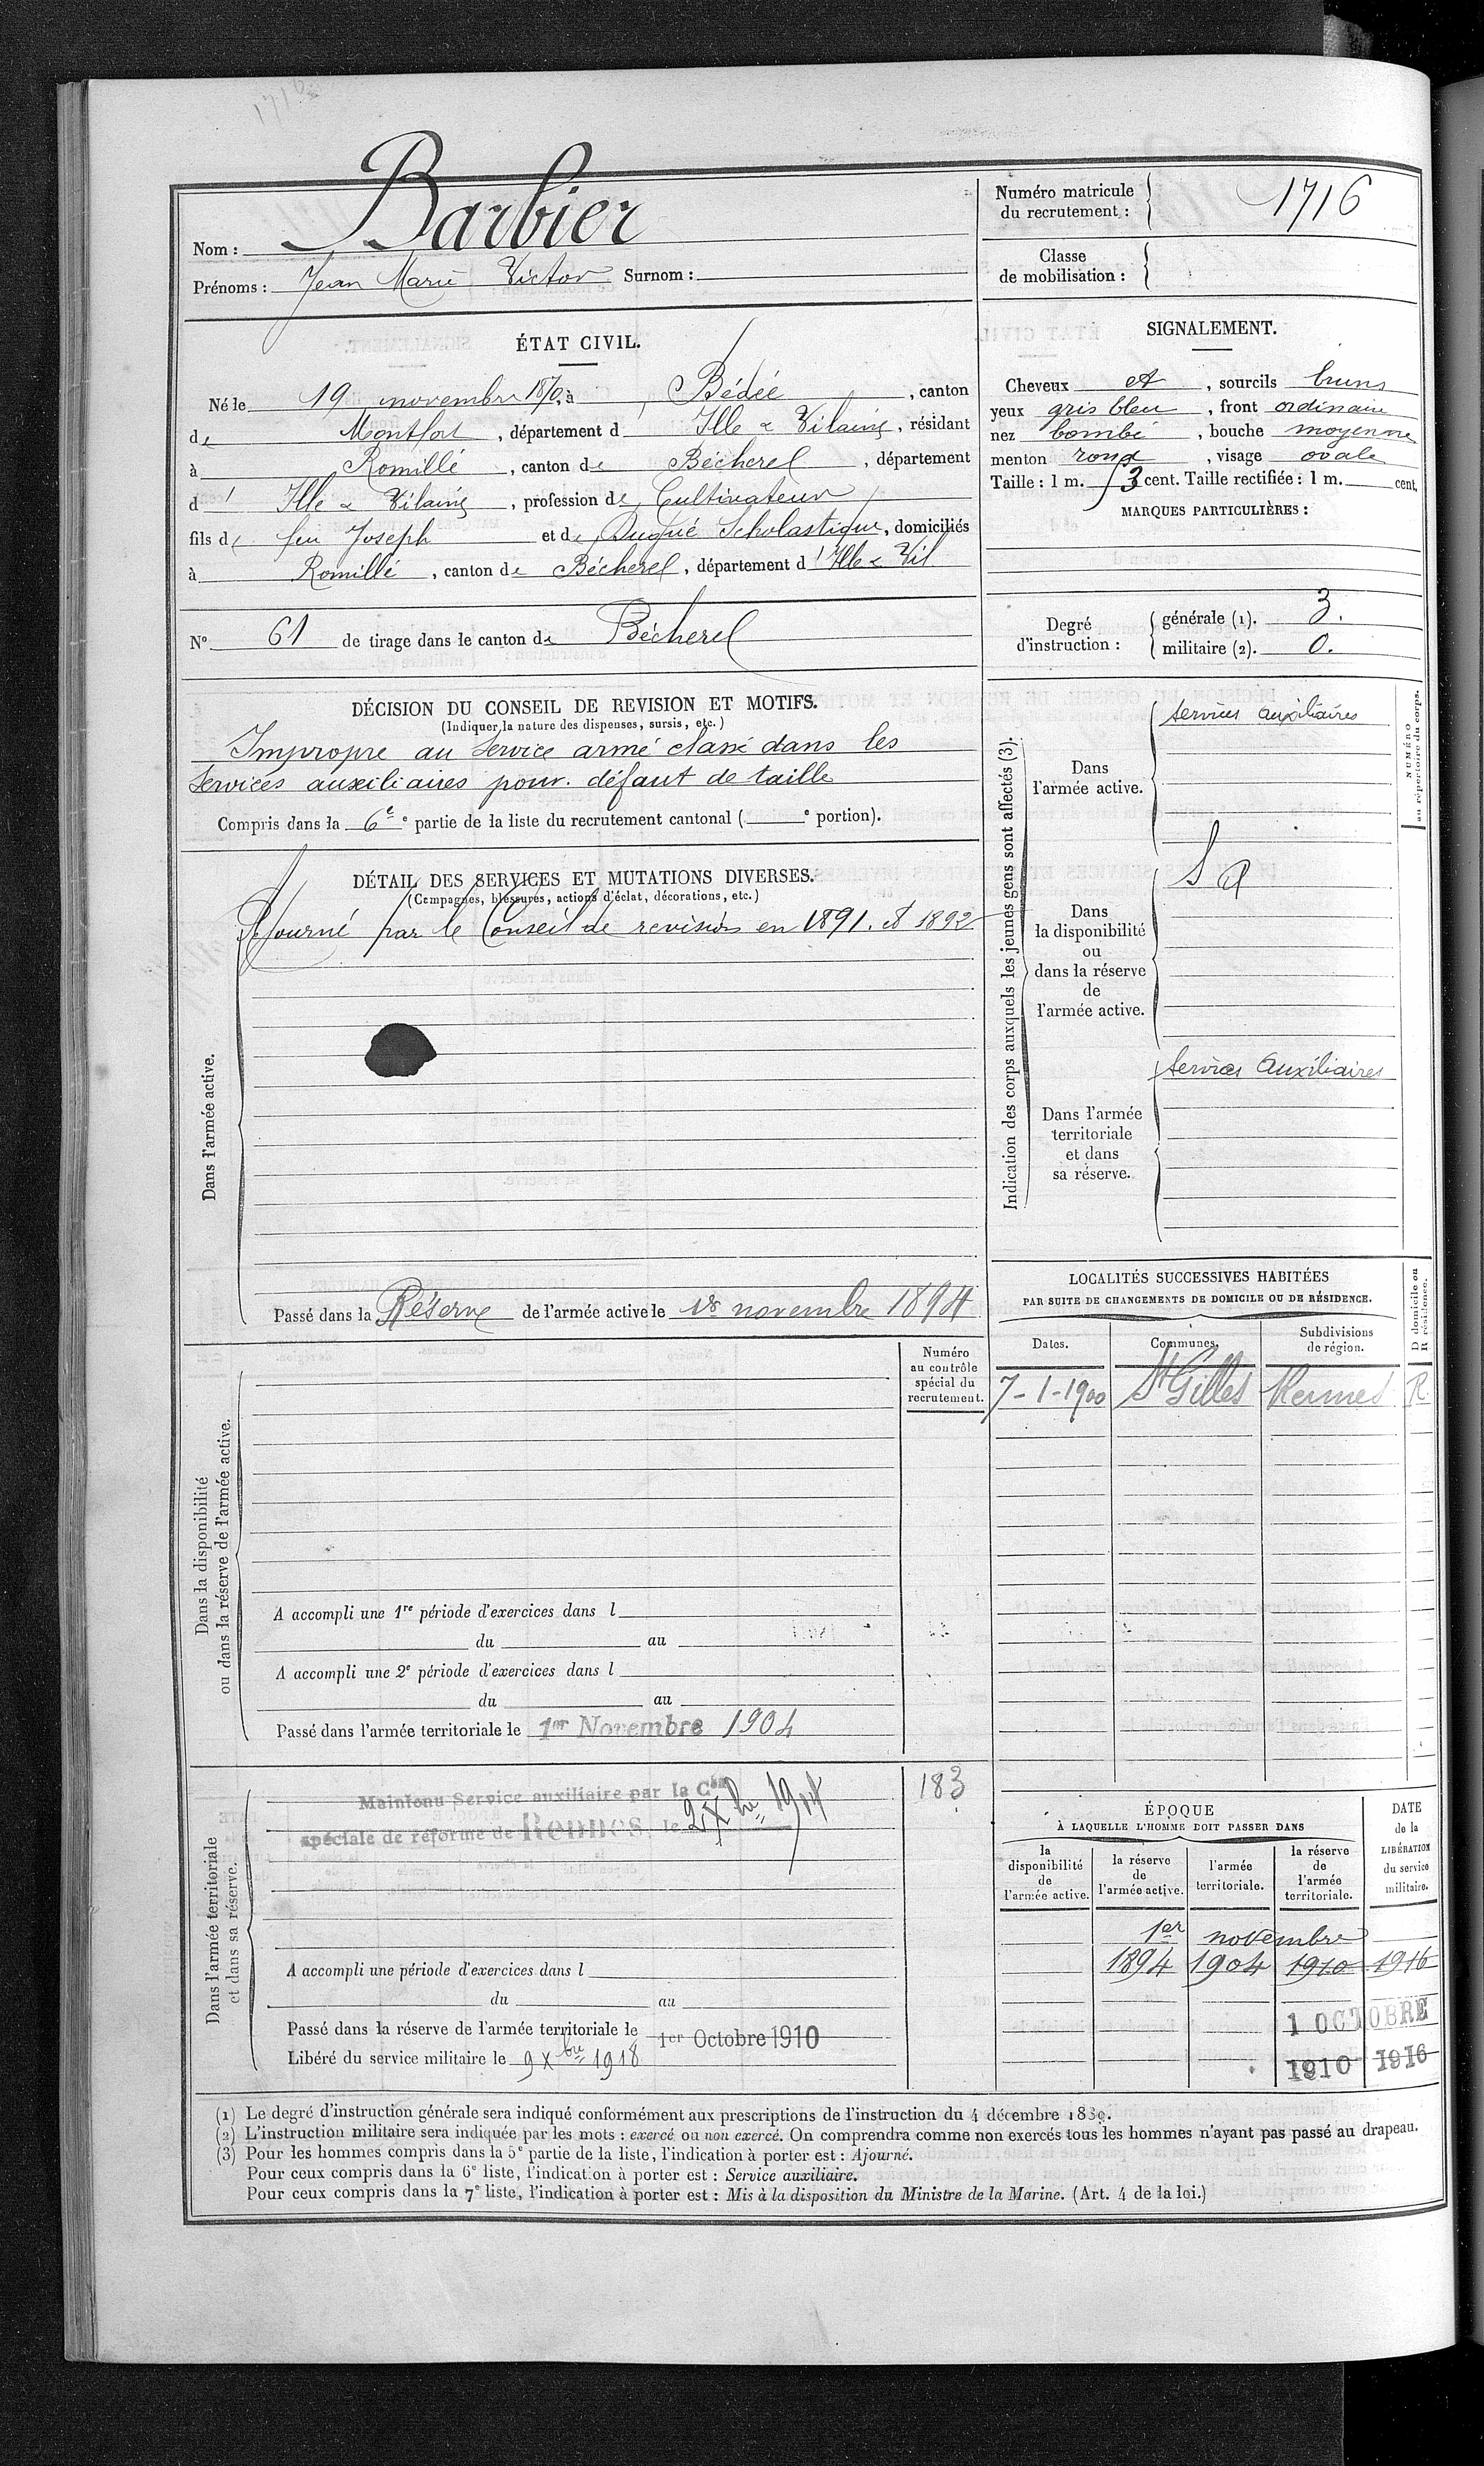 1716
Nom : Barbier
Prénoms : Jean Marie Victor Surnom :
Numéro matricule du recrutement : 1716
Classe de mobilisation :
ÉTAT CIVIL.
Né le 19 novembre 1870, à Bédée, canton
de Montfort, département d Ille & Vilaine, résidant
à Romillé, canton de Bécherel, département
d' Ille & Vilaine, profession de Cultivateur
fils de feu Joseph et de Dugué Scholastique, domiciliés
à Romillé, canton de Bécherel, département d' Ille & Vil
N° 61 de tirage dans le canton de Bécherel
SIGNALEMENT.
Cheveux et, sourcils bruns
yeux gris bleu, front ordinaire
nez bombé, bouche moyenne
menton rond, visage ovale
Taille : 1 m. 53 cent. Taille rectifiée : 1 m. cent.
MARQUES PARTICULIÈRES :
Degré d'instruction :
générale (1). 3.
militaire (2). 0.
DÉCISION DU CONSEIL DE REVISION ET MOTIFS.
(Indiquer la nature des dispenses, sursis, etc.)
Impropre au service armé classé dans les
services auxiliaires pour défaut de taille
Compris dans la 6e e partie de la liste du recrutement cantonal ( e portion).
DÉTAIL DES SERVICES ET MUTATIONS DIVERSES.
(Campagnes, blessures, actions d'éclat, décorations, etc.)
Dans l'armée active.
Ajourné par le Conseil de revision en 1891. et 1892
Passé dans la Réserve de l'armée active le 18 novembre 1894
Indication des corps auxquels les jeunes gens sont affectés (3).
NUMÉRO au répertoire du corps.
Dans l'armée active.
Services auxiliaires
Dans la disponibilité ou dans la réserve de l'armée active.
S A
Dans l'armée territoriale et dans sa réserve.
Services Auxiliaires
LOCALITÉS SUCCESSIVES HABITÉES
PAR SUITE DE CHANGEMENTS DE DOMICILE OU DE RÉSIDENCE.
Dates. Communes. Subdivisions de région. D domicile ou R résidence.
7-1-1900 St Gilles Rennes R
Dans la disponibilité ou dans la réserve de l'armée active.
Numéro au contrôle spécial du recrutement.
A accompli une 1re période d'exercices dans l
du au
A accompli une 2e période d'exercices dans l
du au
Passé dans l'armée territoriale le 1er Novembre 1904
Dans l'armée territoriale et dans sa réserve.
Maintenu Service auxiliaire par la Con
spéciale de réforme de Rennes, le 2 Xbre 1914
183
A accompli une période d'exercices dans l
du au
Passé dans la réserve de l'armée territoriale le 1er Octobre 1910
Libéré du service militaire le 9 Xbre 1918
ÉPOQUE
À LAQUELLE L'HOMME DOIT PASSER DANS
DATE de la LIBÉRATION du service militaire.
la disponibilité de l'armée active.
la réserve de l'armée active.
l'armée territoriale.
la réserve de l'armée territoriale.
1er novembre
1894 1904 1910 1916
1 OCTOBRE
1910 1916
(1) Le degré d'instruction générale sera indiqué conformément aux prescriptions de l'instruction du 4 décembre 1889.
(2) L'instruction militaire sera indiquée par les mots : exercé ou non exercé. On comprendra comme non exercés tous les hommes n'ayant pas passé au drapeau.
(3) Pour les hommes compris dans la 5e partie de la liste, l'indication à porter est : Ajourné.
Pour ceux compris dans la 6e liste, l'indication à porter est : Service auxiliaire.
Pour ceux compris dans la 7e liste, l'indication à porter est : Mis à la disposition du Ministre de la Marine. (Art. 4 de la loi.)